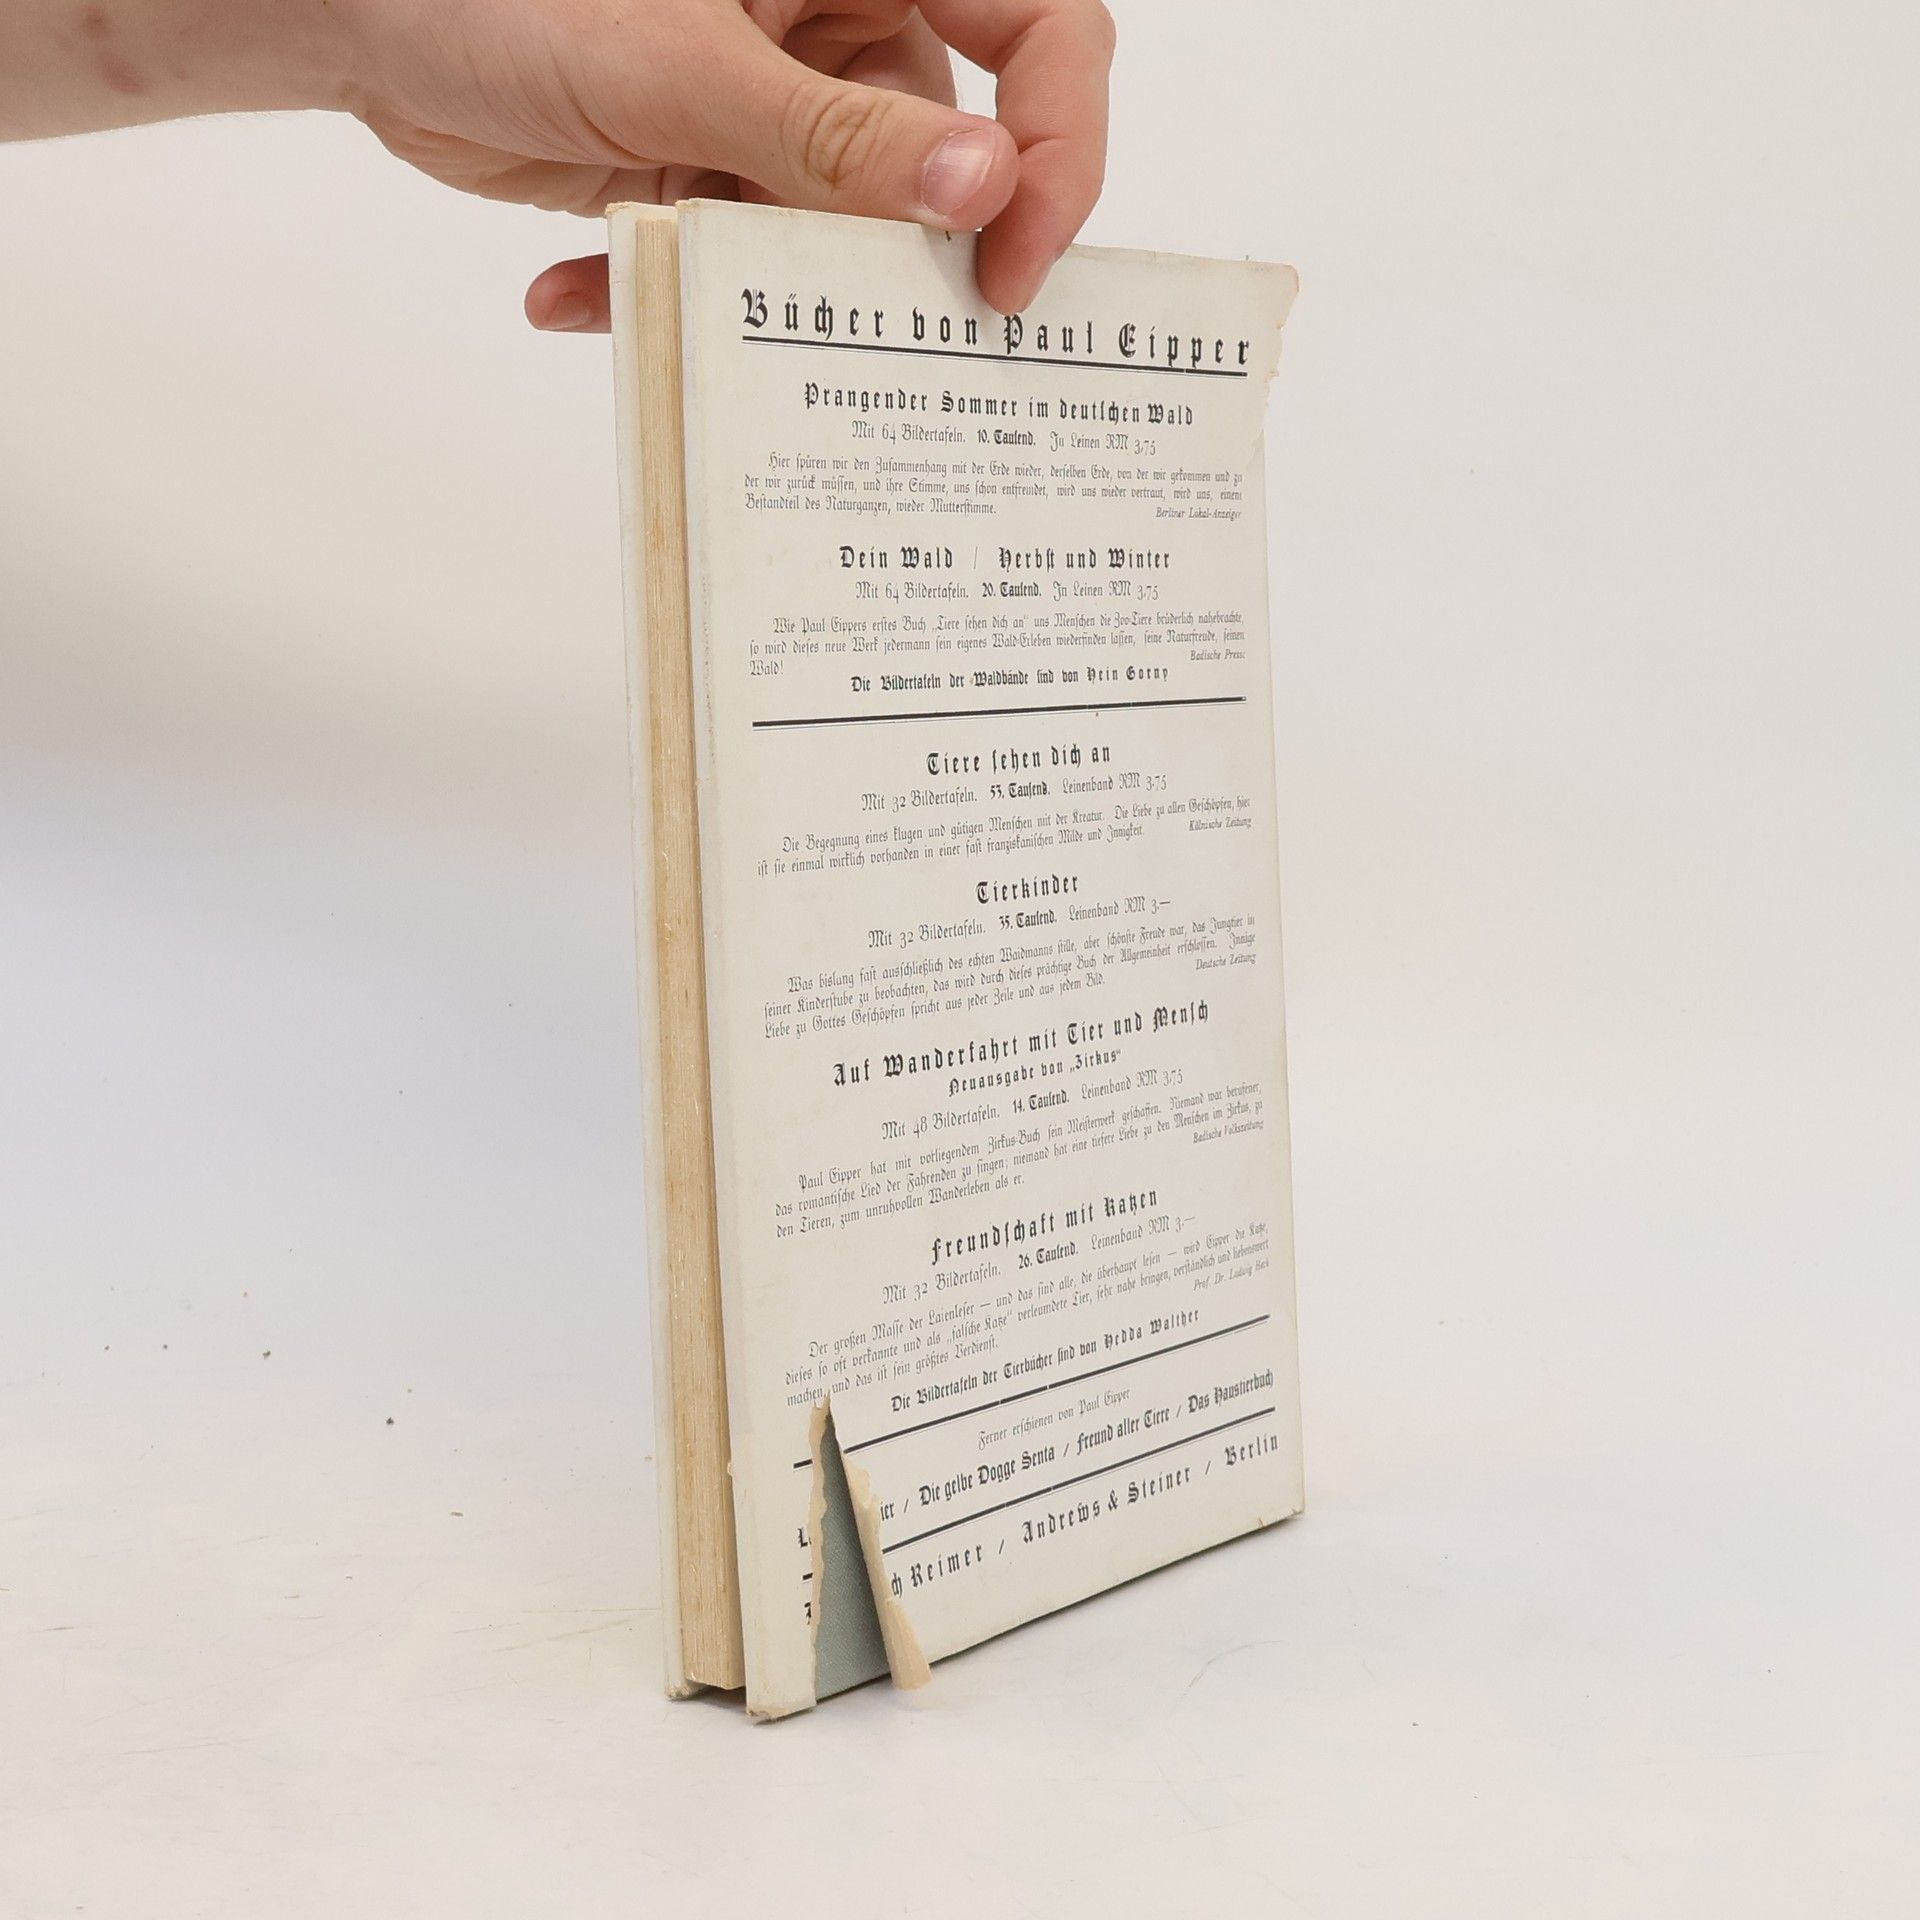 Bücher von Paul Eipper
Prangender Sommer im deutschen Wald
Mit 64 Bildertafeln. 10. Tausend. In Leinen RM 3,75
Hier spüren wir den Zusammenhang mit der Erde wieder, derselben Erde, von der wir gekommen und zu
der wir zurück müssen, und ihre Stimme, uns schon entfremdet, wird uns wieder vertraut, wird uns, einem
Bestandteil des Naturganzen, wieder Mutterstimme. Berliner Lokal-Anzeiger
Dein Wald / Herbst und Winter
Mit 64 Bildertafeln. 20. Tausend. In Leinen RM 3,75
Wie Paul Eippers erstes Buch „Tiere sehen dich an“ uns Menschen die Zoo-Tiere brüderlich nahebrachte,
so wird dieses neue Werk jedermann sein eigenes Wald-Erleben wiederfinden lassen, seine Naturfreude, seinen
Wald! Badische Presse
Die Bildertafeln der Waldbände sind von Hein Gorny
Tiere sehen dich an
Mit 32 Bildertafeln. 53. Tausend. Leinenband RM 3,75
Die Begegnung eines klugen und gütigen Menschen mit der Kreatur. Die Liebe zu allen Geschöpfen, hier
ist sie einmal wirklich vorhanden in einer fast franziskanischen Milde und Innigkeit. Kölnische Zeitung
Tierkinder
Mit 32 Bildertafeln. 35. Tausend. Leinenband RM 3,—
Was bislang fast ausschließlich des echten Waidmanns stille, aber schönste Freude war, das Jungtier in
seiner Kinderstube zu beobachten, das wird durch dieses prächtige Buch der Allgemeinheit erschlossen. Innige
Liebe zu Gottes Geschöpfen spricht aus jeder Zeile und aus jedem Bild. Deutsche Zeitung
Auf Wanderfahrt mit Tier und Mensch
Neuausgabe von „Zirkus“
Mit 48 Bildertafeln. 14. Tausend. Leinenband RM 3,75
Paul Eipper hat mit vorliegendem Zirkus-Buch sein Meisterwerk geschaffen. Niemand war berufener,
das romantische Lied der Fahrenden zu singen; niemand hat eine tiefere Liebe zu den Menschen im Zirkus, zu
den Tieren, zum unruhvollen Wanderleben als er. Badische Volkszeitung
Freundschaft mit Katzen
Mit 32 Bildertafeln. 26. Tausend. Leinenband RM 3,—
Der großen Masse der Laienleser — und das sind alle, die überhaupt lesen — wird Eipper die Katze,
dieses so oft verkannte und als „falsche Katze“ verleumdete Tier, sehr nahe bringen, verständlich und liebenswert
machen, und das ist sein größtes Verdienst. Prof. Dr. Ludwig Heck
Die Bildertafeln der Tierbücher sind von Hedda Walther
Ferner erschienen von Paul Eipper
ier / Die gelbe Dogge Senta / Freund aller Tiere / Das Haustierbuch
ch Reimer / Andrews & Steiner / Berlin